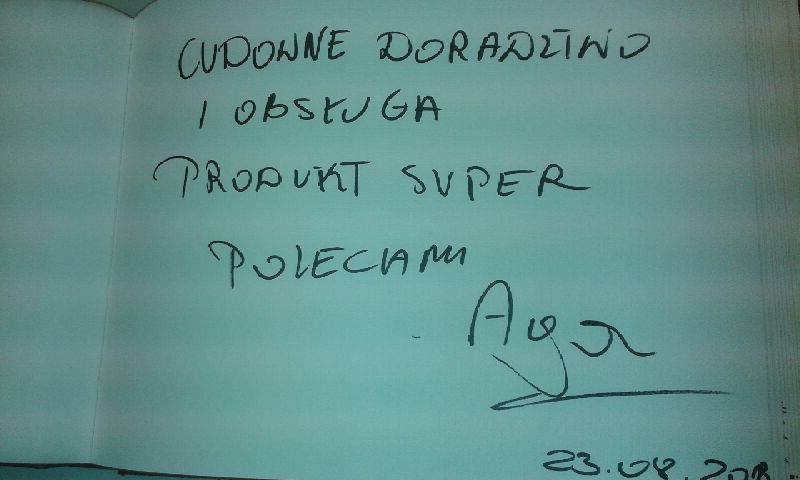 CUDOWNE DORADZTWO
I OBSŁUGA
PRODUKT SUPER
POLECAM
Aga